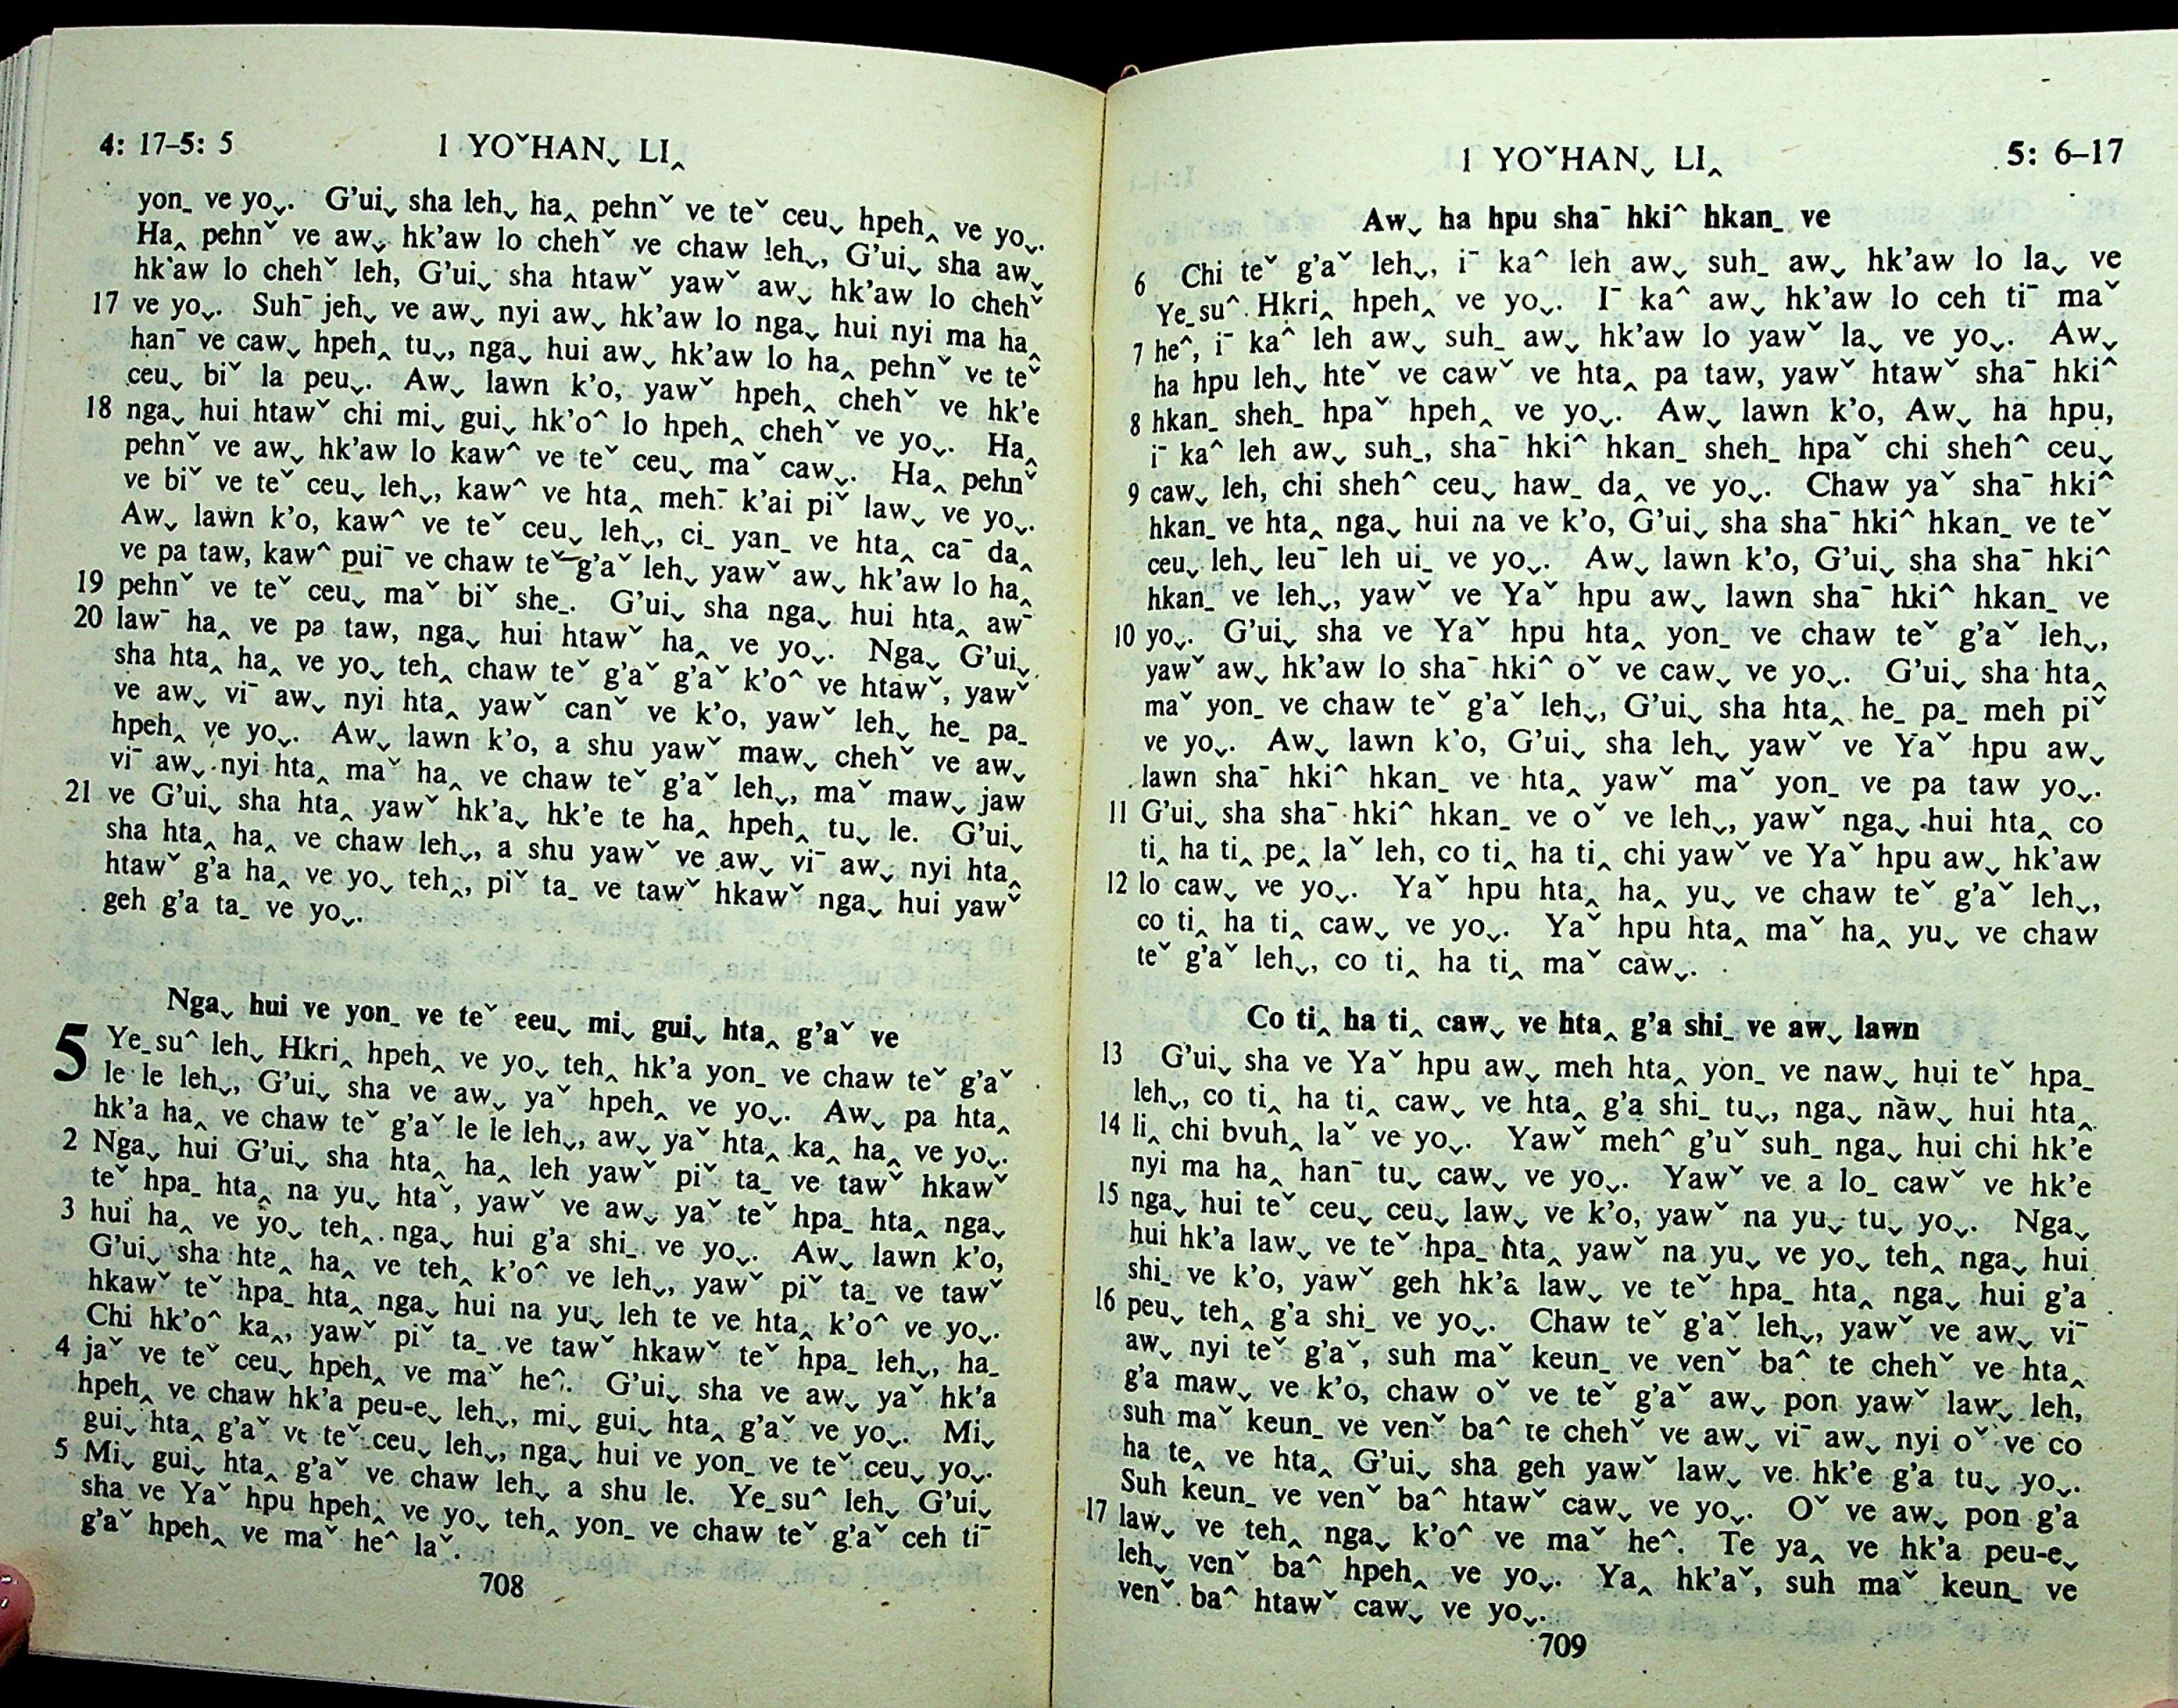 4: 17–5: 5
1 YOˇHANˬ LI‸
yon_ ve yoˬ. G’uiˬ sha lehˬ ha‸ pehnˇ ve teˇ ceuˬ hpeh‸ ve yoˬ.
Ha‸ pehnˇ ve awˬ hk’aw lo chehˇ ve chaw lehˬ, G’uiˬ sha awˬ
hk’aw lo chehˇ leh, G’uiˬ sha htawˇ yawˇ awˬ hk’aw lo chehˇ
17 ve yoˬ. Suh¯ jehˬ ve awˬ nyi awˬ hk’aw lo ngaˬ hui nyi ma ha‸
han¯ ve cawˬ hpeh‸ tuˬ, ngaˬ hui awˬ hk’aw lo ha‸ pehnˇ ve teˇ
ceuˬ biˇ la peuˬ. Awˬ lawn k’o, yawˇ hpeh‸ chehˇ ve hk’e
18 ngaˬ hui htawˇ chi miˬ guiˬ hk’o^ lo hpeh‸ chehˇ ve yoˬ. Ha‸
pehnˇ ve awˬ hk’aw lo kaw^ ve teˇ ceuˬ maˇ cawˬ. Ha‸ pehnˇ
ve biˇ ve teˇ ceuˬ lehˬ, kaw^ ve hta‸ meh¯ k’ai piˇ lawˬ ve yoˬ.
Awˬ lawn k’o, kaw^ ve teˇ ceuˬ lehˬ, ci_ yan_ ve hta‸ ca¯ da‸
ve pa taw, kaw^ pui¯ ve chaw teˇ g’aˇ lehˬ yawˇ awˬ hk’aw lo ha‸
19 pehnˇ ve teˇ ceuˬ maˇ biˇ she_. G’uiˬ sha ngaˬ hui hta‸ aw¯
20 law¯ ha‸ ve pa taw, ngaˬ hui htawˇ ha‸ ve yoˬ. Ngaˬ G’uiˬ
sha hta‸ ha‸ ve yoˬ teh‸ chaw teˇ g’aˇ g’aˇ k’o^ ve htawˇ, yawˇ
ve awˬ vi¯ awˬ nyi hta‸ yawˇ canˇ ve k’o, yawˇ lehˬ he_ pa_
hpeh‸ ve yoˬ. Awˬ lawn k’o, a shu yawˇ mawˬ chehˇ ve awˬ
vi¯ awˬ nyi hta‸ maˇ ha‸ ve chaw teˇ g’aˇ lehˬ, maˇ mawˬ jaw
21 ve G’uiˬ sha hta‸ yawˇ hk’aˬ hk’e te ha‸ hpeh‸ tuˬ le. G’uiˬ
sha hta‸ ha‸ ve chaw lehˬ, a shu yawˇ ve awˬ vi¯ awˬ nyi hta‸
htawˇ g’a ha‸ ve yoˬ teh‸, piˇ ta_ ve tawˇ hkawˇ ngaˬ hui yawˇ
geh g’a ta_ ve yoˬ.
Ngaˬ hui ve yon_ ve teˇ eeuˬ miˬ guiˬ hta‸ g’aˇ ve
5 Ye_su^ lehˬ Hkri‸ hpeh‸ ve yoˬ teh‸ hk’a yon_ ve chaw teˇ g’aˇ
le le lehˬ, G’uiˬ sha ve awˬ yaˇ hpeh‸ ve yoˬ. Awˬ pa hta‸
hk’a ha‸ ve chaw teˇ g’aˇ le le lehˬ, awˬ yaˇ hta‸ ka‸ ha‸ ve yoˬ.
2 Ngaˬ hui G’uiˬ sha hta‸ ha‸ leh yawˇ piˇ ta_ ve tawˇ hkawˇ
teˇ hpa_ hta‸ na yuˬ htaˇ, yawˇ ve awˬ yaˇ teˇ hpa_ hta‸ ngaˬ
3 hui ha‸ ve yoˬ teh‸ ngaˬ hui g’a shi_ ve yoˬ. Awˬ lawn k’o,
G’uiˬ sha hta‸ ha‸ ve teh‸ k’o^ ve lehˬ, yawˇ piˇ ta_ ve tawˇ
hkawˇ teˇ hpa_ hta‸ ngaˬ hui na yuˬ leh te ve hta‸ k’o^ ve yoˬ.
Chi hk’o^ ka‸, yawˇ piˇ ta_ ve tawˇ hkawˇ teˇ hpa_ lehˬ, ha_
4 jaˇ ve teˇ ceuˬ hpeh‸ ve maˇ he^. G’uiˬ sha ve awˬ yaˇ hk’a
hpeh‸ ve chaw hk’a peu-eˬ lehˬ, miˬ guiˬ hta‸ g’aˇ ve yoˬ. Miˬ
guiˬ hta‸ g’aˇ ve teˇ ceuˬ lehˬ, ngaˬ hui ve yon_ ve teˇ ceuˬ yoˬ.
5 Miˬ guiˬ hta‸ g’aˇ ve chaw lehˬ a shu le. Ye_su^ lehˬ G’uiˬ
sha ve Yaˇ hpu hpeh‸ ve yoˬ teh‸ yon_ ve chaw teˇ g’aˇ ceh ti¯
g’aˇ hpeh‸ ve maˇ he^ laˇ.
708
1 YOˇHANˬ LI‸
5: 6–17
Awˬ ha hpu sha¯ hki^ hkan_ ve
6 Chi teˇ g’aˇ lehˬ, i¯ ka^ leh awˬ suh_ awˬ hk’aw lo laˬ ve
Ye_su^ Hkri‸ hpeh‸ ve yoˬ. I¯ ka^ awˬ hk’aw lo ceh ti¯ maˇ
7 he^, i¯ ka^ leh awˬ suh_ awˬ hk’aw lo yawˇ laˬ ve yoˬ. Awˬ
ha hpu lehˬ hteˇ ve cawˇ ve hta‸ pa taw, yawˇ htawˇ sha¯ hki^
8 hkan_ sheh_ hpaˇ hpeh‸ ve yoˬ. Awˬ lawn k’o, Awˬ ha hpu,
i¯ ka^ leh awˬ suh_, sha¯ hki^ hkan_ sheh_ hpaˇ chi sheh^ ceuˬ
9 cawˬ leh, chi sheh^ ceuˬ haw_ da‸ ve yoˬ. Chaw yaˇ sha¯ hki^
hkan_ ve hta‸ ngaˬ hui na ve k’o, G’uiˬ sha sha¯ hki^ hkan_ ve teˇ
ceuˬ lehˬ leu¯ leh ui_ ve yoˬ. Awˬ lawn k’o, G’uiˬ sha sha¯ hki^
hkan_ ve lehˬ, yawˇ ve Yaˇ hpu awˬ lawn sha¯ hki^ hkan_ ve
10 yoˬ. G’uiˬ sha ve Yaˇ hpu hta‸ yon_ ve chaw teˇ g’aˇ lehˬ,
yawˇ awˬ hk’aw lo sha¯ hki^ oˇ ve cawˬ ve yoˬ. G’uiˬ sha hta‸
maˇ yon_ ve chaw teˇ g’aˇ lehˬ, G’uiˬ sha hta‸ he_ pa_ meh piˇ
ve yoˬ. Awˬ lawn k’o, G’uiˬ sha lehˬ yawˇ ve Yaˇ hpu awˬ
lawn sha¯ hki^ hkan_ ve hta‸ yawˇ maˇ yon_ ve pa taw yoˬ.
11 G’uiˬ sha sha¯ hki^ hkan_ ve oˇ ve lehˬ, yawˇ ngaˬ hui hta‸ co
ti‸ ha ti‸ pe‸ laˇ leh, co ti‸ ha ti‸ chi yawˇ ve Yaˇ hpu awˬ hk’aw
12 lo cawˬ ve yoˬ. Yaˇ hpu hta‸ ha‸ yuˬ ve chaw teˇ g’aˇ lehˬ,
co ti‸ ha ti‸ cawˬ ve yoˬ. Yaˇ hpu hta‸ maˇ ha‸ yuˬ ve chaw
teˇ g’aˇ lehˬ, co ti‸ ha ti‸ maˇ cawˬ.
Co ti‸ ha ti‸ cawˬ ve hta‸ g’a shi_ ve awˬ lawn
13 G’uiˬ sha ve Yaˇ hpu awˬ meh hta‸ yon_ ve nawˬ hui teˇ hpa_
lehˬ, co ti‸ ha ti‸ cawˬ ve hta‸ g’a shi_ tuˬ, ngaˬ nawˬ hui hta‸
14 li‸ chi bvuh‸ laˇ ve yoˬ. Yawˇ meh^ g’uˇ suh_ ngaˬ hui chi hk’e
nyi ma ha‸ han¯ tuˬ cawˬ ve yoˬ. Yawˇ ve a lo_ cawˇ ve hk’e
15 ngaˬ hui teˇ ceuˬ ceuˬ lawˬ ve k’o, yawˇ na yuˬ tuˬ yoˬ. Ngaˬ
hui hk’a lawˬ ve teˇ hpa_ hta‸ yawˇ na yuˬ ve yoˬ teh‸ ngaˬ hui
shi_ ve k’o, yawˇ geh hk’a lawˬ ve teˇ hpa_ hta‸ ngaˬ hui g’a
16 peuˬ teh‸ g’a shi_ ve yoˬ. Chaw teˇ g’aˇ lehˬ, yawˇ ve awˬ vi¯
awˬ nyi teˇ g’aˇ, suh maˇ keun_ ve venˇ ba^ te chehˇ ve hta‸
g’a mawˬ ve k’o, chaw oˇ ve teˇ g’aˇ awˬ pon yawˇ lawˬ leh,
suh maˇ keun_ ve venˇ ba^ te chehˇ ve awˬ vi¯ awˬ nyi oˇ ve co
ha te‸ ve hta‸ G’uiˬ sha geh yawˇ lawˬ ve hk’e g’a tuˬ yoˬ.
Suh keun_ ve venˇ ba^ htawˇ cawˬ ve yoˬ. Oˇ ve awˬ pon g’a
17 lawˬ ve teh‸ ngaˬ k’o^ ve maˇ he^. Te ya‸ ve hk’a peu-eˬ
lehˬ venˇ ba^ hpeh‸ ve yoˬ. Ya‸ hk’aˇ, suh maˇ keun_ ve
venˇ ba^ htawˇ cawˬ ve yoˬ.
709